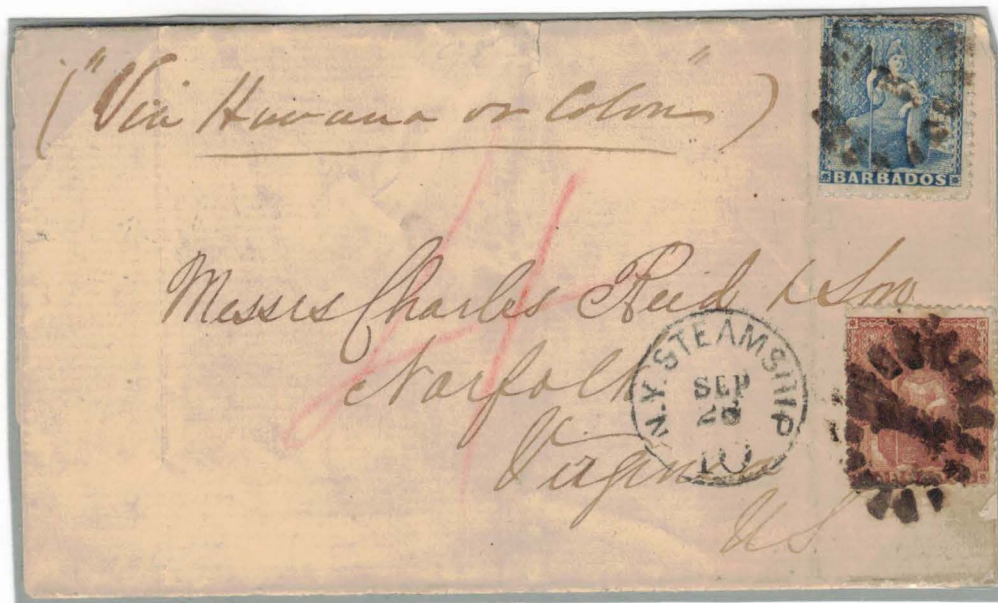 ("Via Havana or Colon")
BARBADOS
4
Messrs Charles Reid & Son
Norfolk
Virginia
U.S.
N.Y. STEAMSHIP
SEP
10